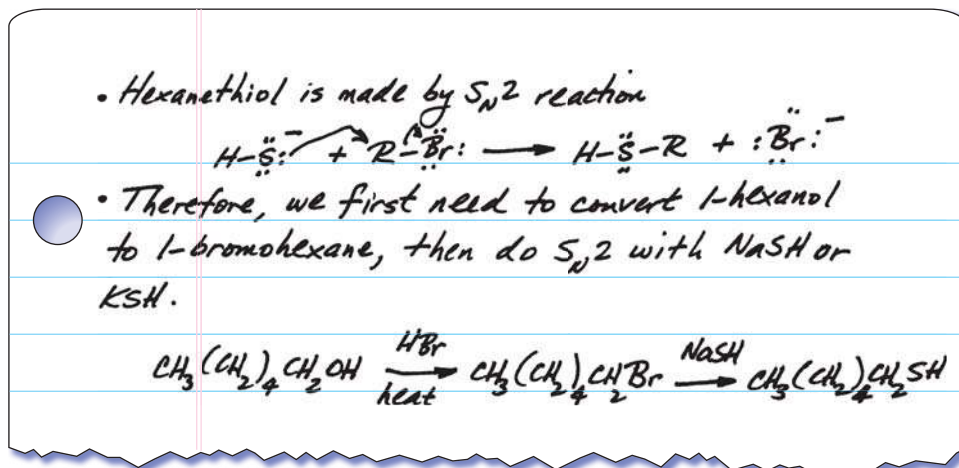 • Hexanethiol is made by SN2 reaction
H–S̈:⁻ + R–B̈r: ⟶ H–S̈–R + :B̈r:⁻
• Therefore, we first need to convert 1-hexanol
to 1-bromohexane, then do SN2 with NaSH or
KSH.
CH₃(CH₂)₄CH₂OH HBr/heat ⟶ CH₃(CH₂)₄CH₂Br NaSH ⟶ CH₃(CH₂)₄CH₂SH